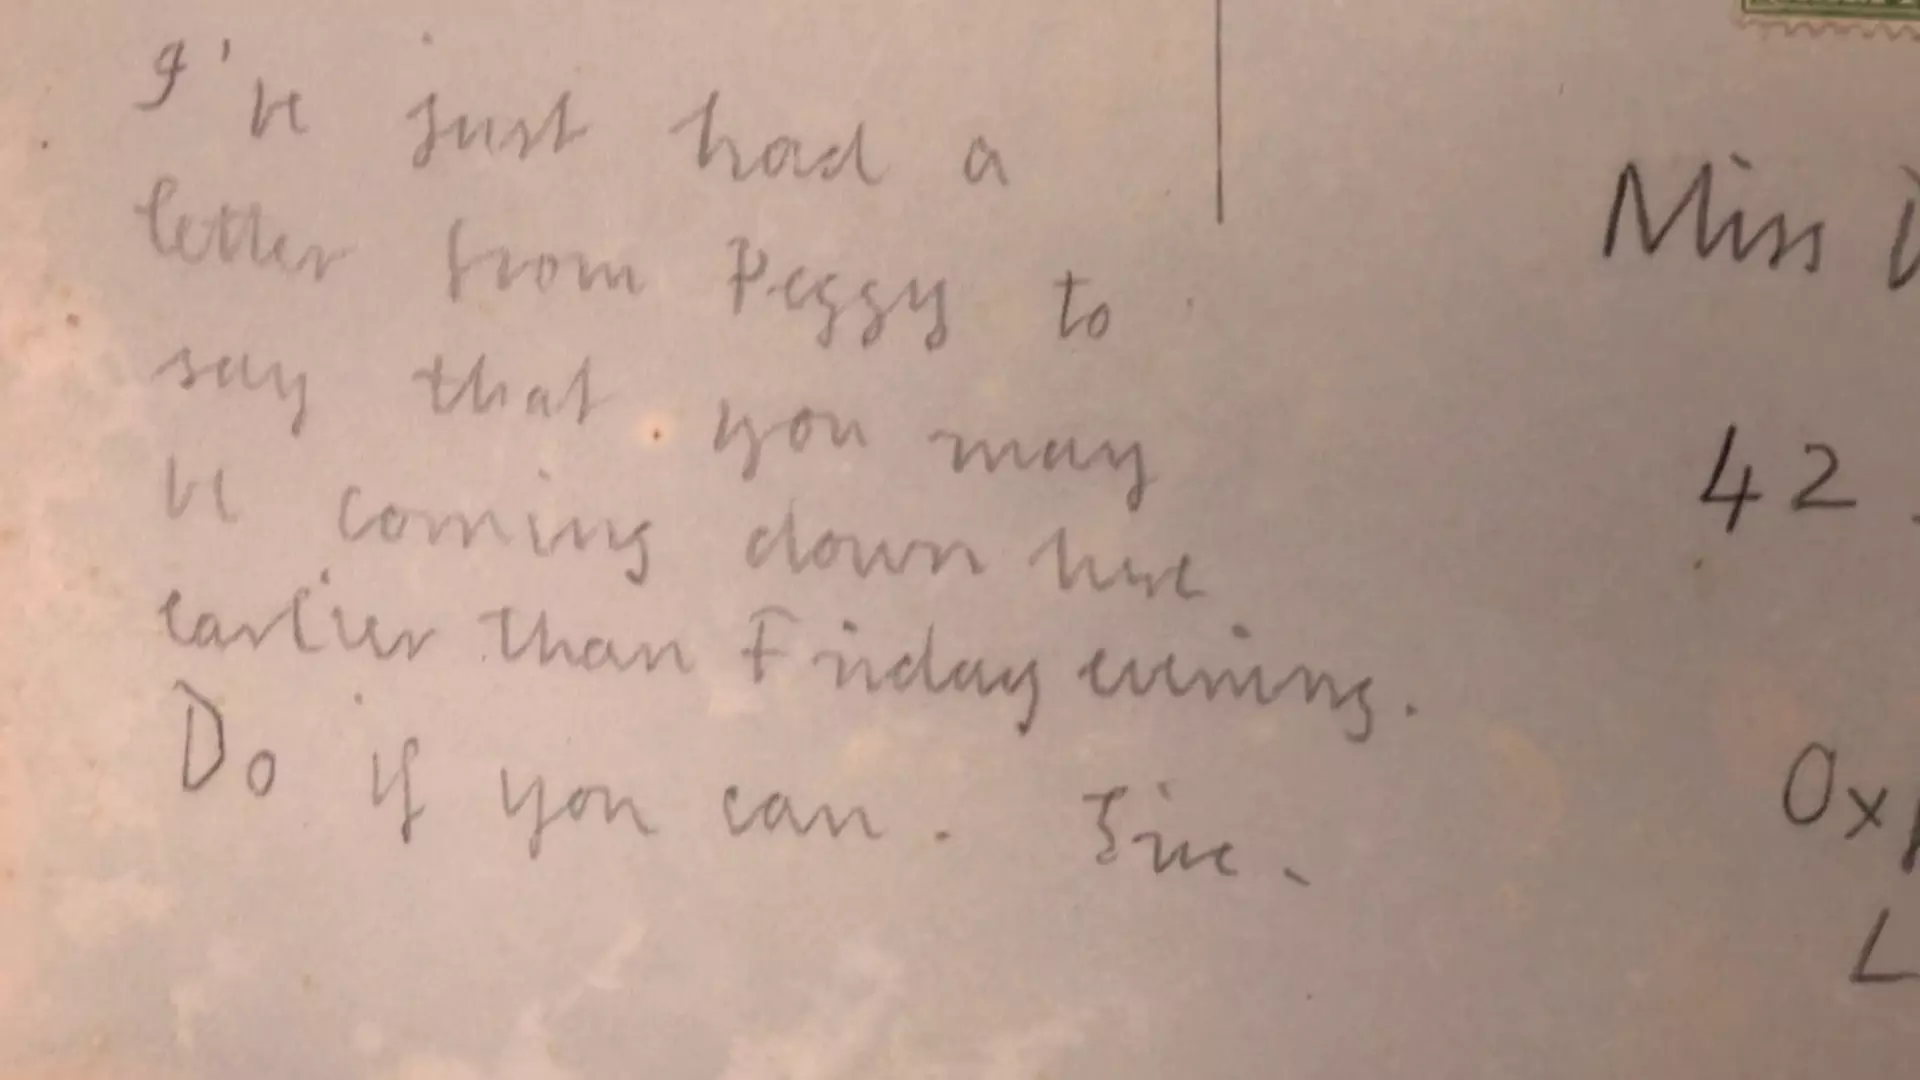 I've just had a
letter from Peggy to
say that you may
be coming down here
earlier than Friday evening.
Do if you can. Eric.
Miss
42
Ox
L